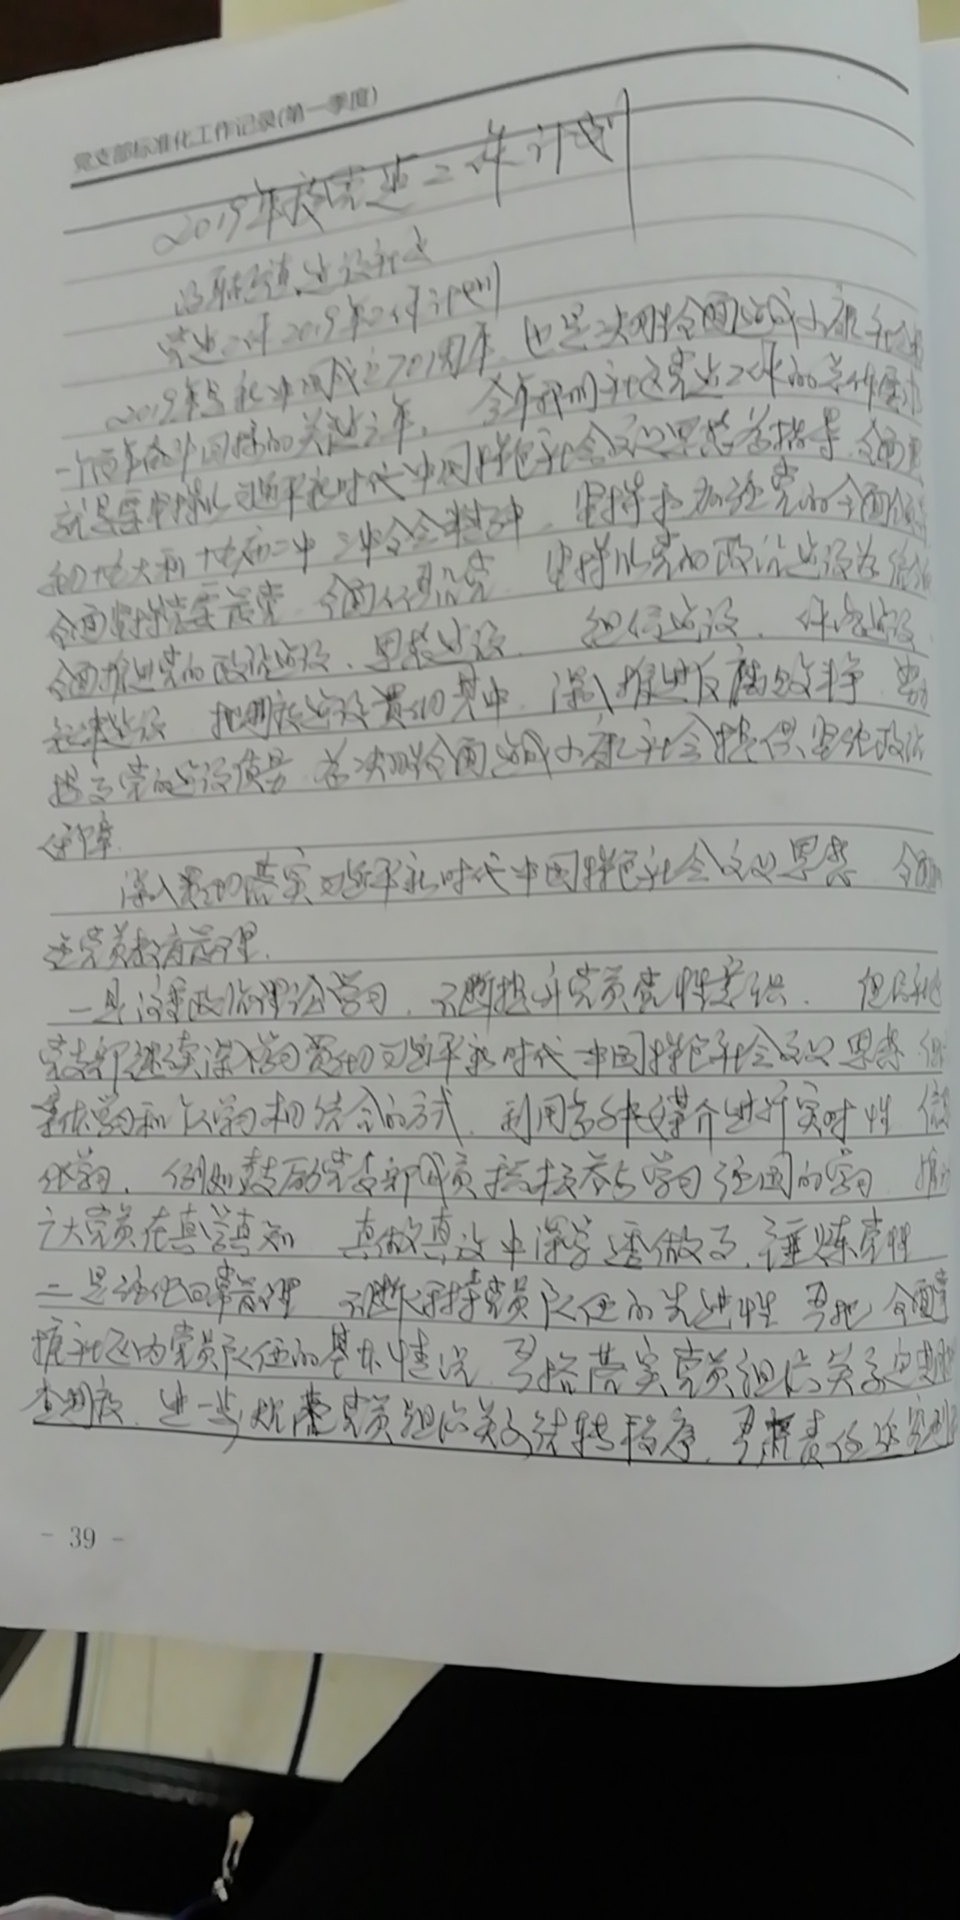 党支部标准化工作记录(第一季度)
2019年度党建工作计划
建设社区
党建工作2019年工作计划
2019年是新中国成立70周年，也是决胜全面建成小康社会
一个百年奋斗目标的关键之年，今年我们社区党建工作的总体要求
就是要坚持以习近平新时代中国特色社会主义思想为指导，全面贯
和十九大和十九届二中三中全会精神，坚持和加强党的全面领导
全面坚持党要管党，全面从严治党，坚持以党的政治建设为统领
全面推进党的政治建设、思想建设、组织建设、作风建设、
纪律建设，把制度建设贯彻其中，深入推进反腐败斗争，
提高党的建设质量，为决胜全面建成小康社会提供坚强政治
保障。
深入贯彻落实习近平新时代中国特色社会主义思想，全面加
强党员教育管理。
一是注重政治理论学习，不断提升党员党性意识。
党支部继续深入学习贯彻习近平新时代中国特色社会主义思想
集体学习和个人学习相结合的方式，利用多种媒介进行实时性
化学习，例如鼓励党支部成员积极参与学习强国的学习，推动
广大党员在真学真知 真做真改中深学透做了，锤炼党性
二是强化日常管理 不断保持党员队伍的先进性 要把全面掌
握社区内党员队伍的基本情况，严格落实党员组织关系定期
查制度，进一步规范党员组织关系结转程序，严把责任落实到
- 39 -